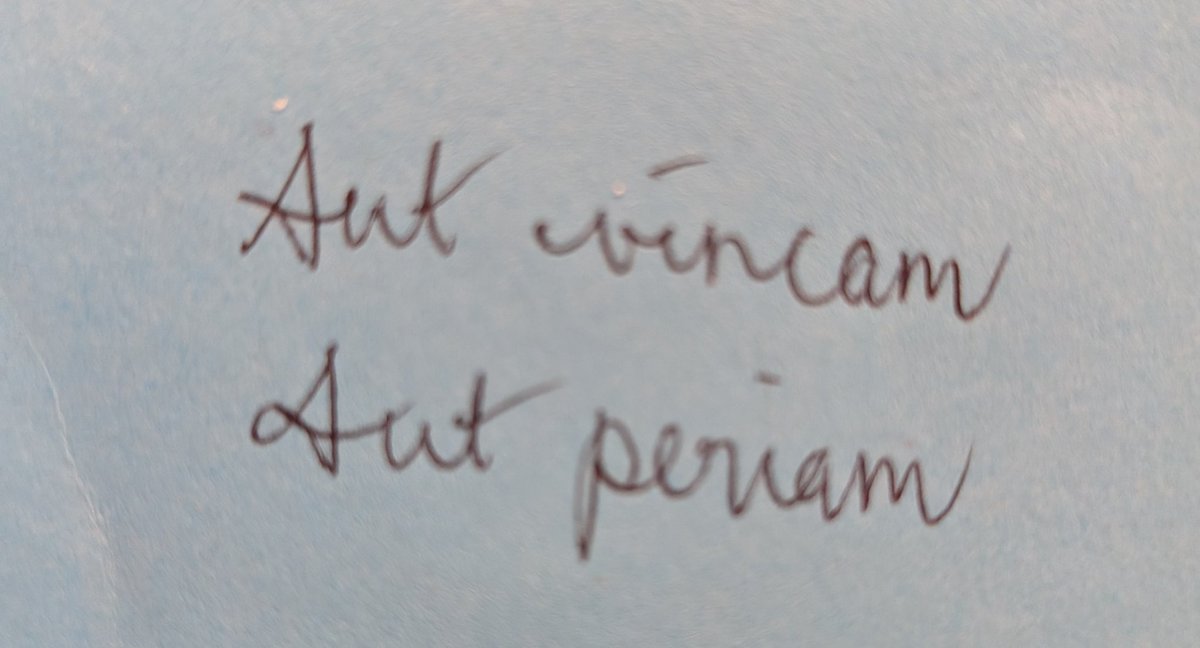 Aut vincam
Aut periam